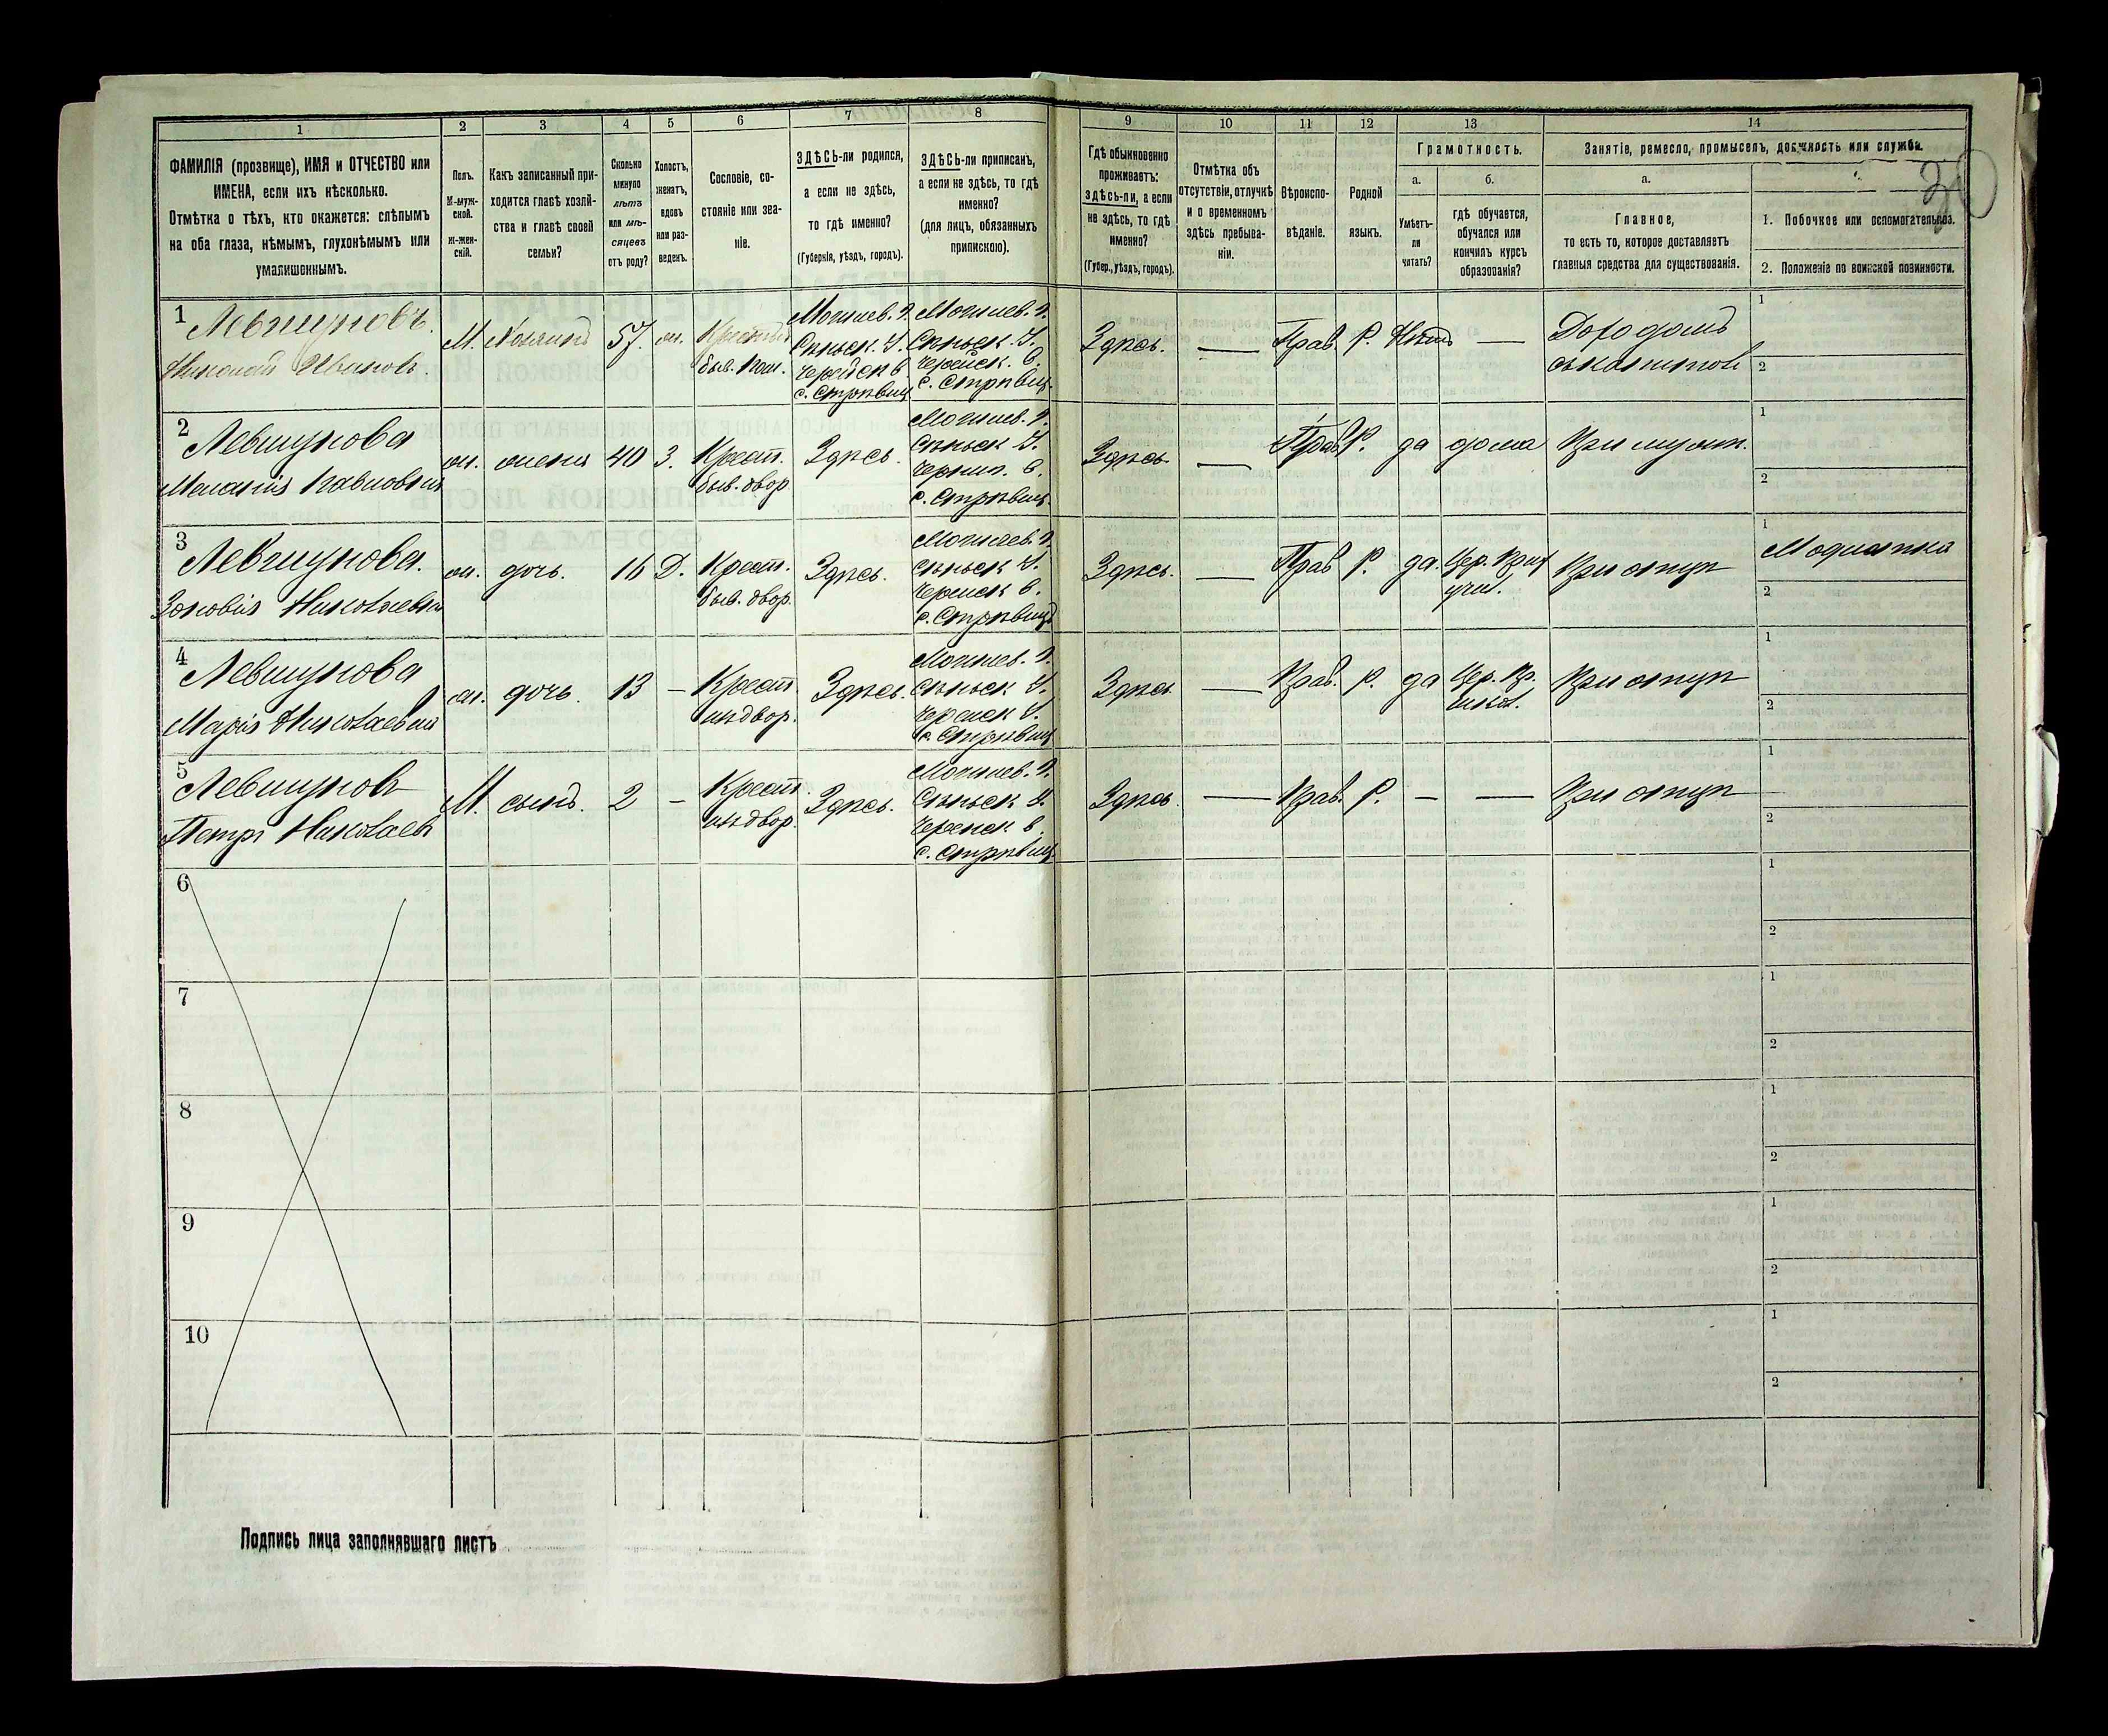 1 2 3 4 5 6 7 8 9 10 11 12 13 14
ФАМИЛІЯ (прозвище), ИМЯ и ОТЧЕСТВО или
ИМЕНА, если ихъ нѣсколько.
Отмѣтка о тѣхъ, кто окажется: слѣпымъ
на оба глаза, нѣмымъ, глухонѣмымъ или
умалишеннымъ.
Полъ.
М-муж-
ской.
Ж-жен-
скій.
Какъ записанный при-
ходится главѣ хозяй-
ства и главѣ своей
семьи?
Сколько
минуло
лѣтъ
или мѣ-
сяцевъ
отъ роду?
Холостъ,
женатъ,
вдовъ
или раз-
веденъ.
Сословіе, со-
стояніе или зва-
ніе.
ЗДѢСЬ-ли родился,
а если не здѣсь,
то гдѣ именно?
(Губернія, уѣздъ, городъ).
ЗДѢСЬ-ли приписанъ,
а если не здѣсь, то гдѣ
именно?
(для лицъ, обязанныхъ
припискою).
Гдѣ обыкновенно
проживаетъ:
здѣсь-ли, а если
не здѣсь, то гдѣ
именно?
(Губер., уѣздъ, городъ).
Отмѣтка объ
отсутствіи, отлучкѣ
и о временномъ
здѣсь пребыва-
ніи.
Вѣроиспо-
вѣданіе.
Родной
языкъ.
Грамотность.
а.
Умѣетъ-
ли
читать?
б.
гдѣ обучается,
обучался или
кончилъ курсъ
образованія?
Занятіе, ремесло, промыселъ, должность или служба.
а.
Главное,
то есть то, которое доставляетъ
главныя средства для существованія.
1. Побочное или вспомогательное.
2. Положеніе по воинской повинности.
1 Левшуновъ
Николай Ивановъ.
М. Хозяинъ 57. ж.
быв. пом.
Могилев. г.
Сѣньск. У.
Черейск в
Могилев. г.
Сѣньск. У.
Черейск. в.
Здѣсь. — Прав. Р. Нѣтъ —
1
2
2 Левшунова
Меланія Павловна
ж. жена 40 З. Крест.
быв. двор
Здѣсь.
Могилев. г.
Сѣньск У.
Здѣсь — Прав. Р. да дома При муж.
1
2
3 Левшунова.
Зановія Николаевна
ж. дочь. 16 Д. Крест.
быв. двор.
Здѣсь.
Могилев. г.
Сѣньск У.
Черейск в.
Здѣсь. — Прав Р. да. Цер. Прих
учил.
При отцѣ
1 Модистка
2
4 Левшунова
Марія Николаевна
ж. дочь. 13 — Крест.
Здѣсь.
Могилев. г.
Сѣньск У.
Здѣсь — Прав. Р. да Цер. Пр.
При отцѣ
1
2
5 Левшуновъ
Петръ Николаевъ
М. сынъ. 2 — Крест.
Здѣсь.
Могилев. г.
Сѣньск У.
Черейск в.
Здѣсь. — Прав. Р. — — При отцѣ
1
2
6
1
2
7
1
2
8
1
2
9
1
2
10
1
2
Подпись лица заполнявшаго листъ